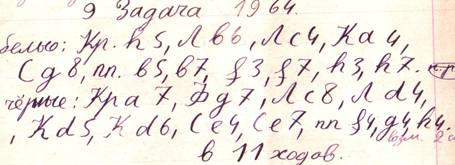 9 Задача 1964.
белые: Кр. h5, Л b6, Лc4, Кa4,
Сg8, пп. b5, b7, f3, f7, h3, h7.
чёрные: Крa7, Фg7, Лc8, Л d4,
, Кd5, Кd6, Сe4, Сe7, пп f4, g4, h4.
в 11 ходов.